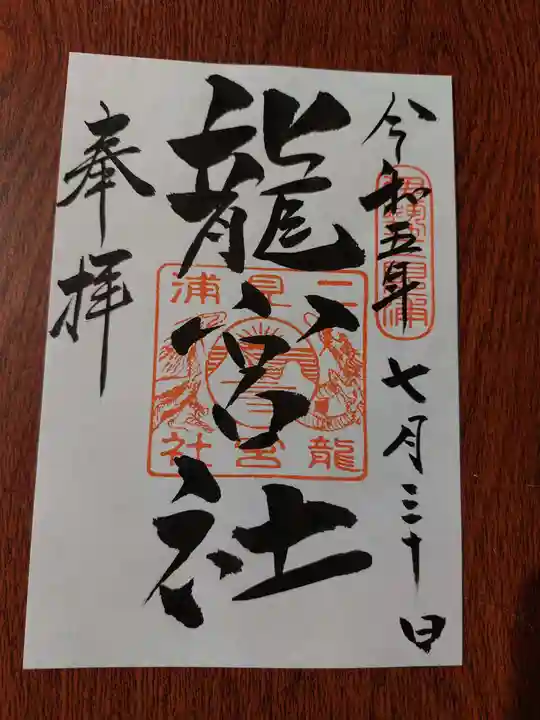 令和五年七月三十日
龍宮社
奉拝
二見浦
龍宮社
伊勢二見浦